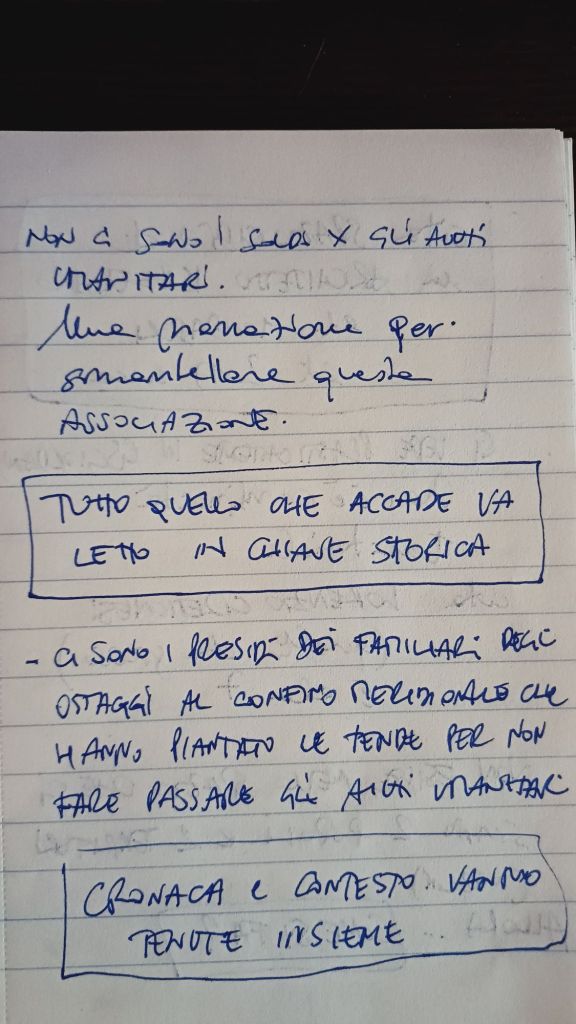 NON CI SONO I SOLDI X GLI AIUTI
UMANITARI.
Una narrazione per
smantellare questa
ASSOCIAZIONE.
TUTTO QUELLO CHE ACCADE VA
LETTO IN CHIAVE STORICA
- CI SONO I PRESIDI DEI FAMILIARI DEGLI
OSTAGGI AL CONFINE MERIDIONALE CHE
HANNO PIANTATO LE TENDE PER NON
FARE PASSARE GLI AIUTI UMANITARI
CRONACA e CONTESTO VANNO
TENUTE INSIEME